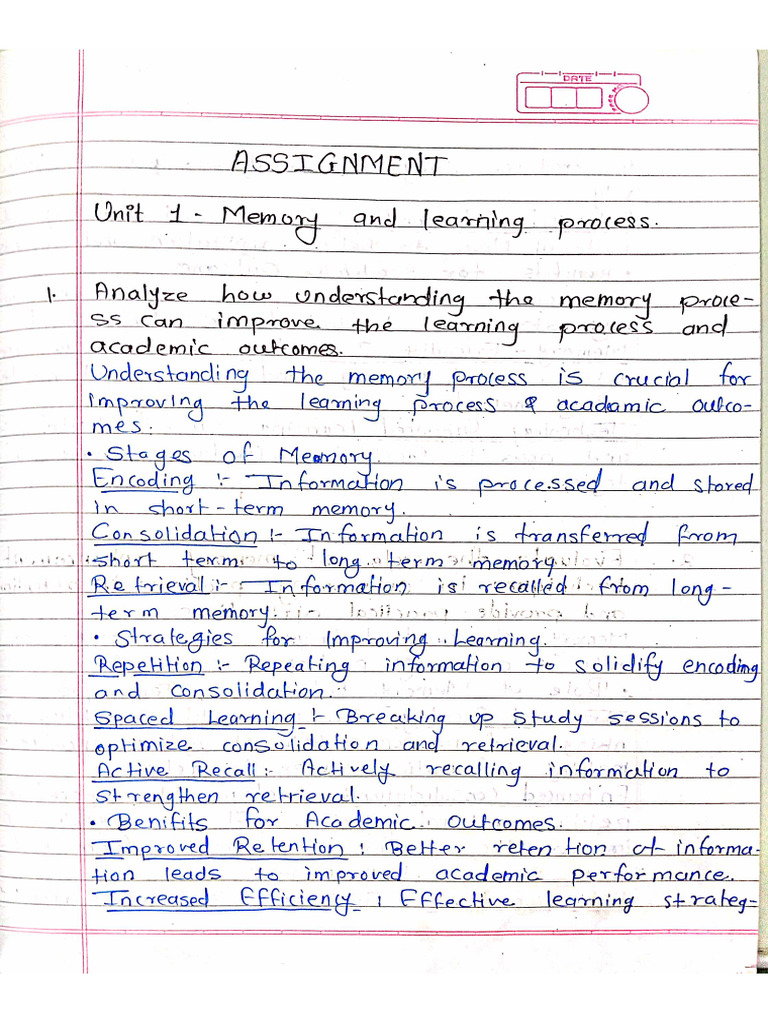 DATE
ASSIGNMENT
Unit 1 - Memory and learning process.
1. Analyze how understanding the memory proce-
ss can improve the learning process and
academic outcomes.
Understanding the memory process is crucial for
improving the learning process & acadamic outco-
mes.
• Stages of Memory.
Encoding :- Information is processed and stored
in short-term memory.
Consolidation :- Information is transferred from
short term to long term memory.
Retrieval :- Information is recalled from long-
term memory.
• Strategies for Improving Learning.
Repetition :- Repeating information to solidify encoding
and consolidation.
Spaced Learning :- Breaking up study sessions to
optimize consolidation and retrieval.
Active Recall :- Actively recalling information to
strengthen retrieval.
• Benifits for Academic outcomes.
Improved Retention : Better retention of informa-
tion leads to improved academic performance.
Increased Efficiency : Effective learning strateg-